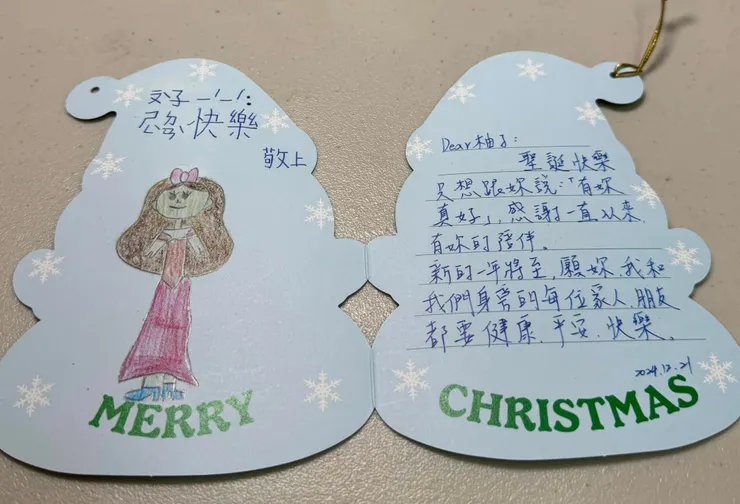 快樂
敬上
MERRY
Dear 柚子:
聖誕快樂
只想跟妳說:「有妳
真好」,感謝一直以來
有妳的陪伴。
新的一年將至,願妳、我和
我們身的每位家人、朋友
都要健康、平安、快樂。
2024.12.21
CHRISTMAS